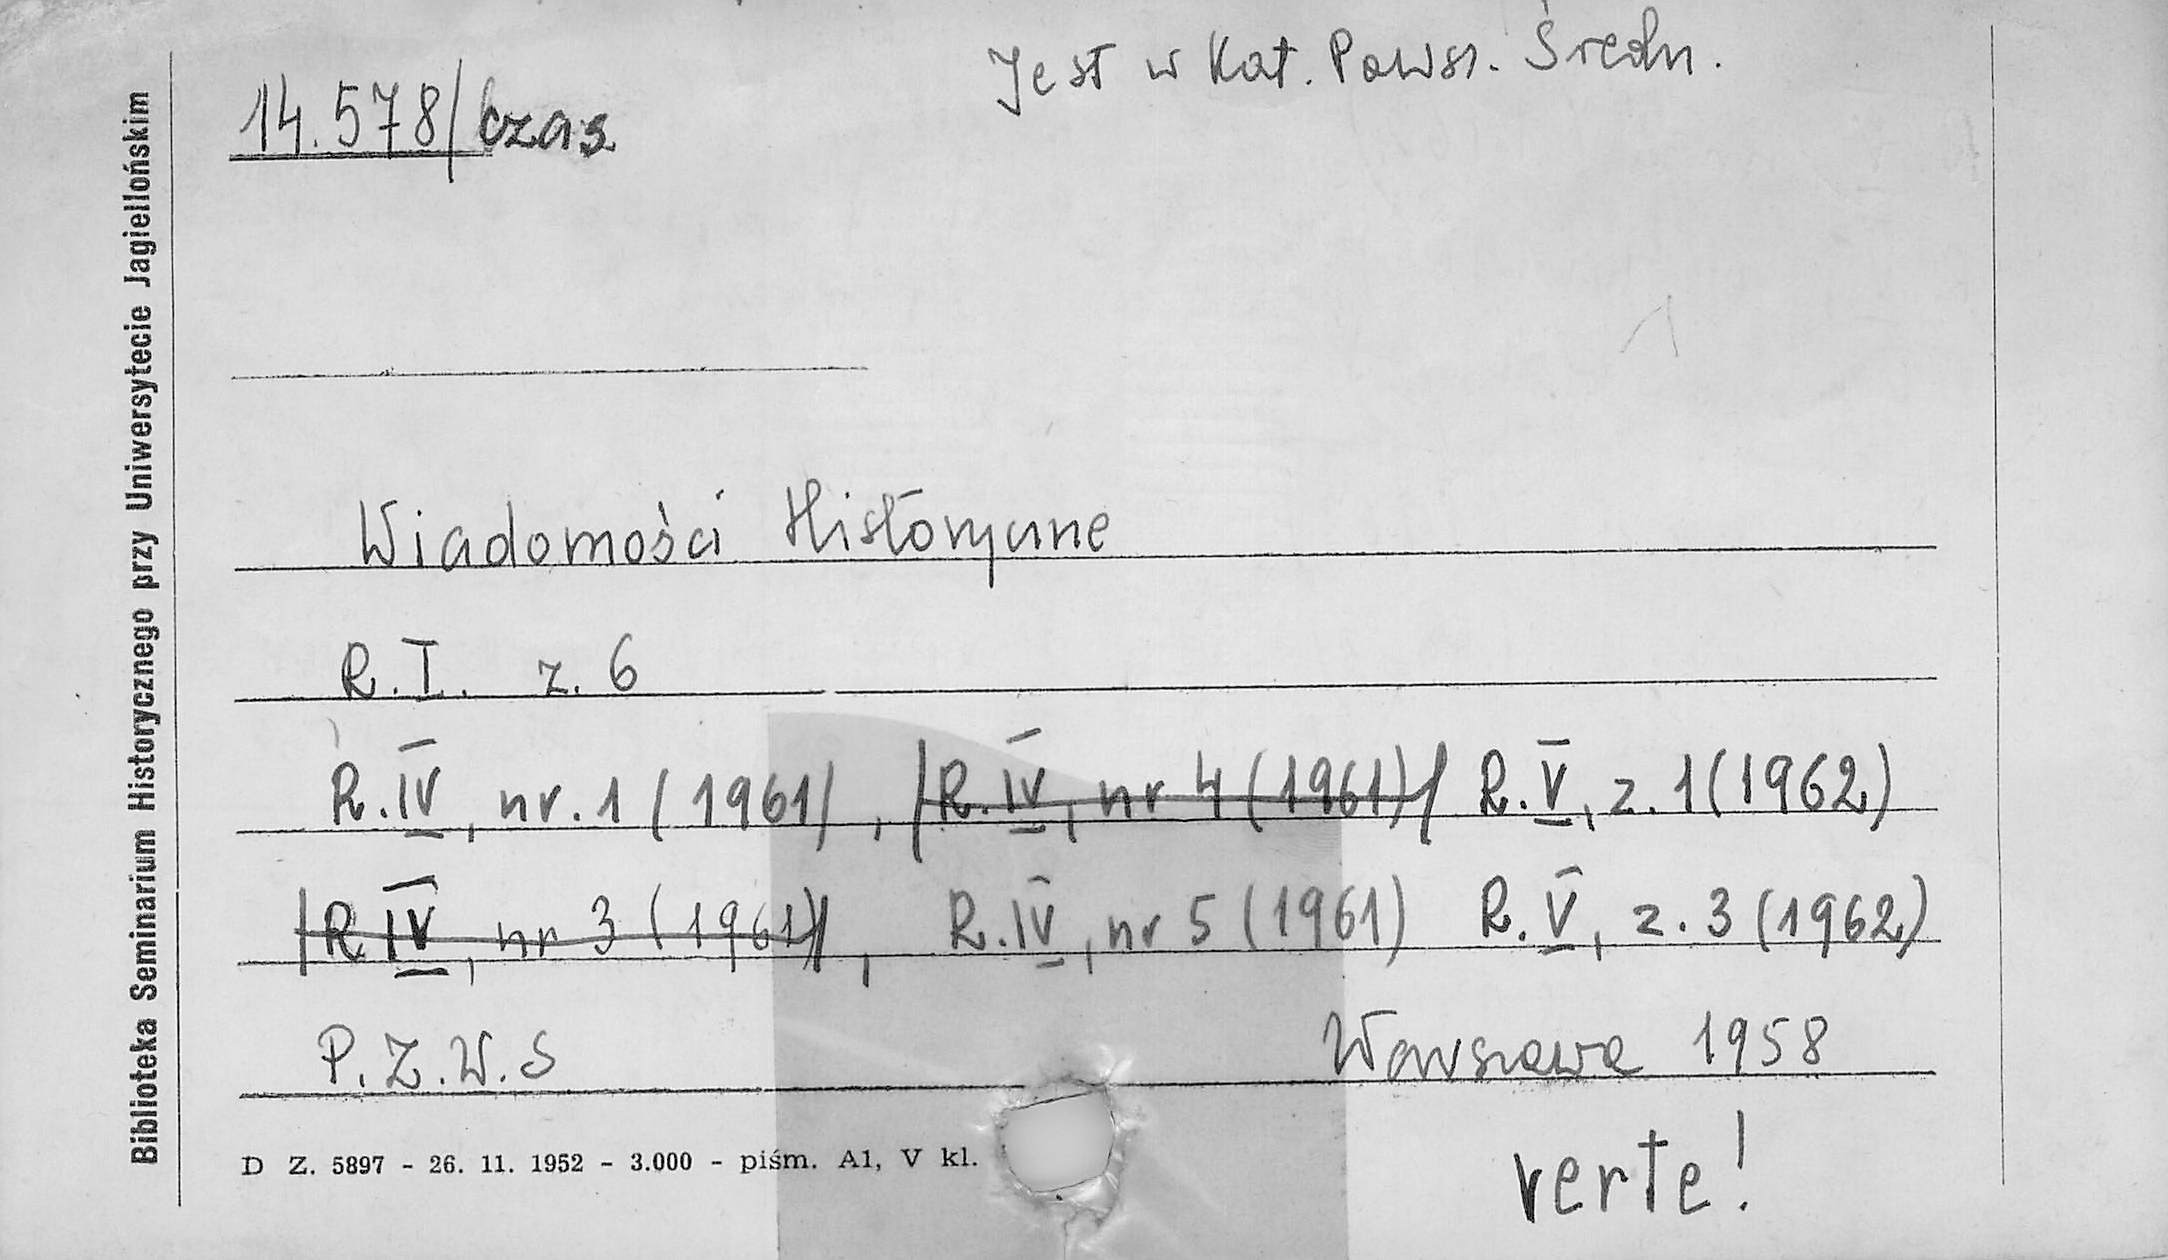 Jest w Kat. Powsz. Średn.
14.578/czas.
Biblioteka Seminarium Historycznego przy Uniwersytecie Jagiellońskim
Wiadomości Historyczne
R.I. z. 6
R.IV, nr.1 (1961), /R.IV, nr 4 (1961)/ R.V, z.1 (1962)
/R.IV, nr 3 (1961)/, R.IV, nr 5 (1961) R.V, z.3 (1962)
P.Z.W.S Warszawa 1958
D Z. 5897 - 26. 11. 1952 - 3.000 - piśm. A1, V kl.
verte!